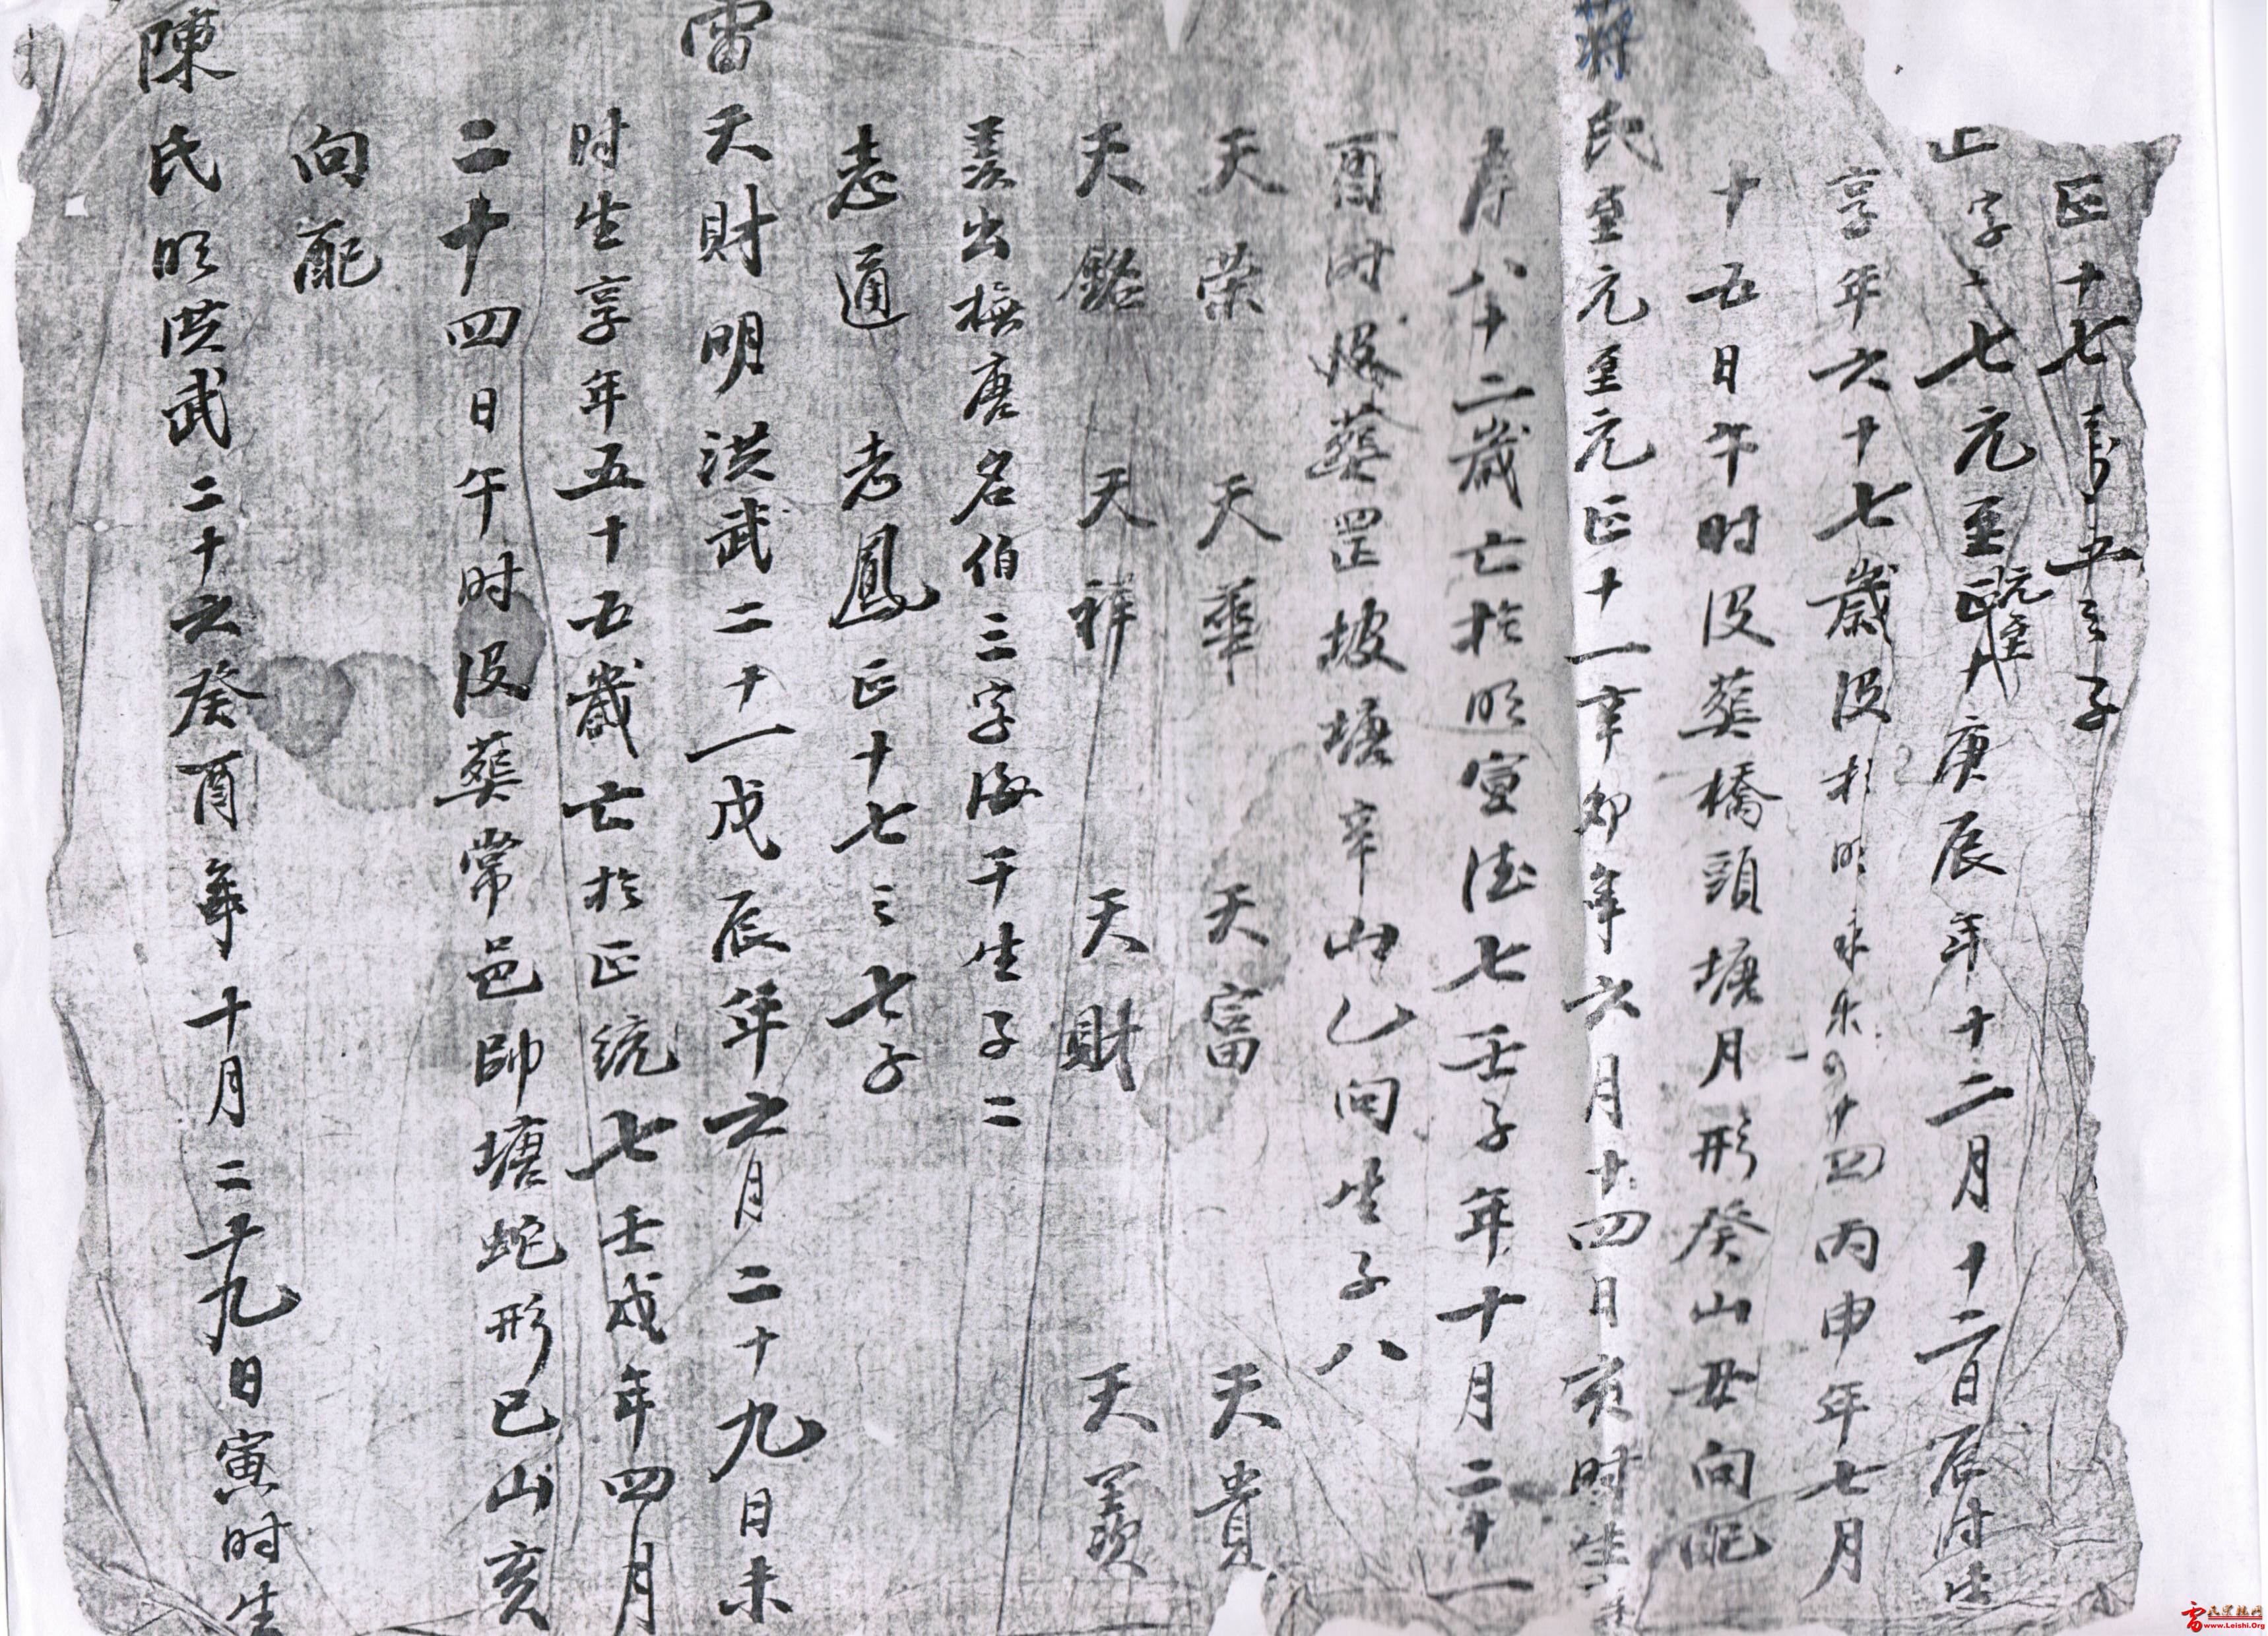 正十七壽五之子
字十七元至正庚辰年十二月十二日辰时生
元至
享年六十七歲没於明永乐十四丙申年七月
十五日午时没葬橋頭塘月形癸山丑向配
蒋氏至元至元正十一辛卯年六月十四日亥时生
寿八十二歲亡於明宣德七壬子年十月二十一
酉时没葬罡坡塘辛山乙向生子八
天荣 天華 天富 天貴
天銘 天祥 天財 天羡
羡出撫唐名伯三字海千生子二
志通 志鳳 正十七之七子
雷天財明洪武二十一戊辰年六月二十九日未
时生享年五十五歲亡於正统七壬戌年四月
二十四日午时没葬常邑帥塘蛇形巳山亥
向配
陳氏明洪武二十六癸酉年十月二十九日寅时生
雷氏宗親网
www.Leishi.Org